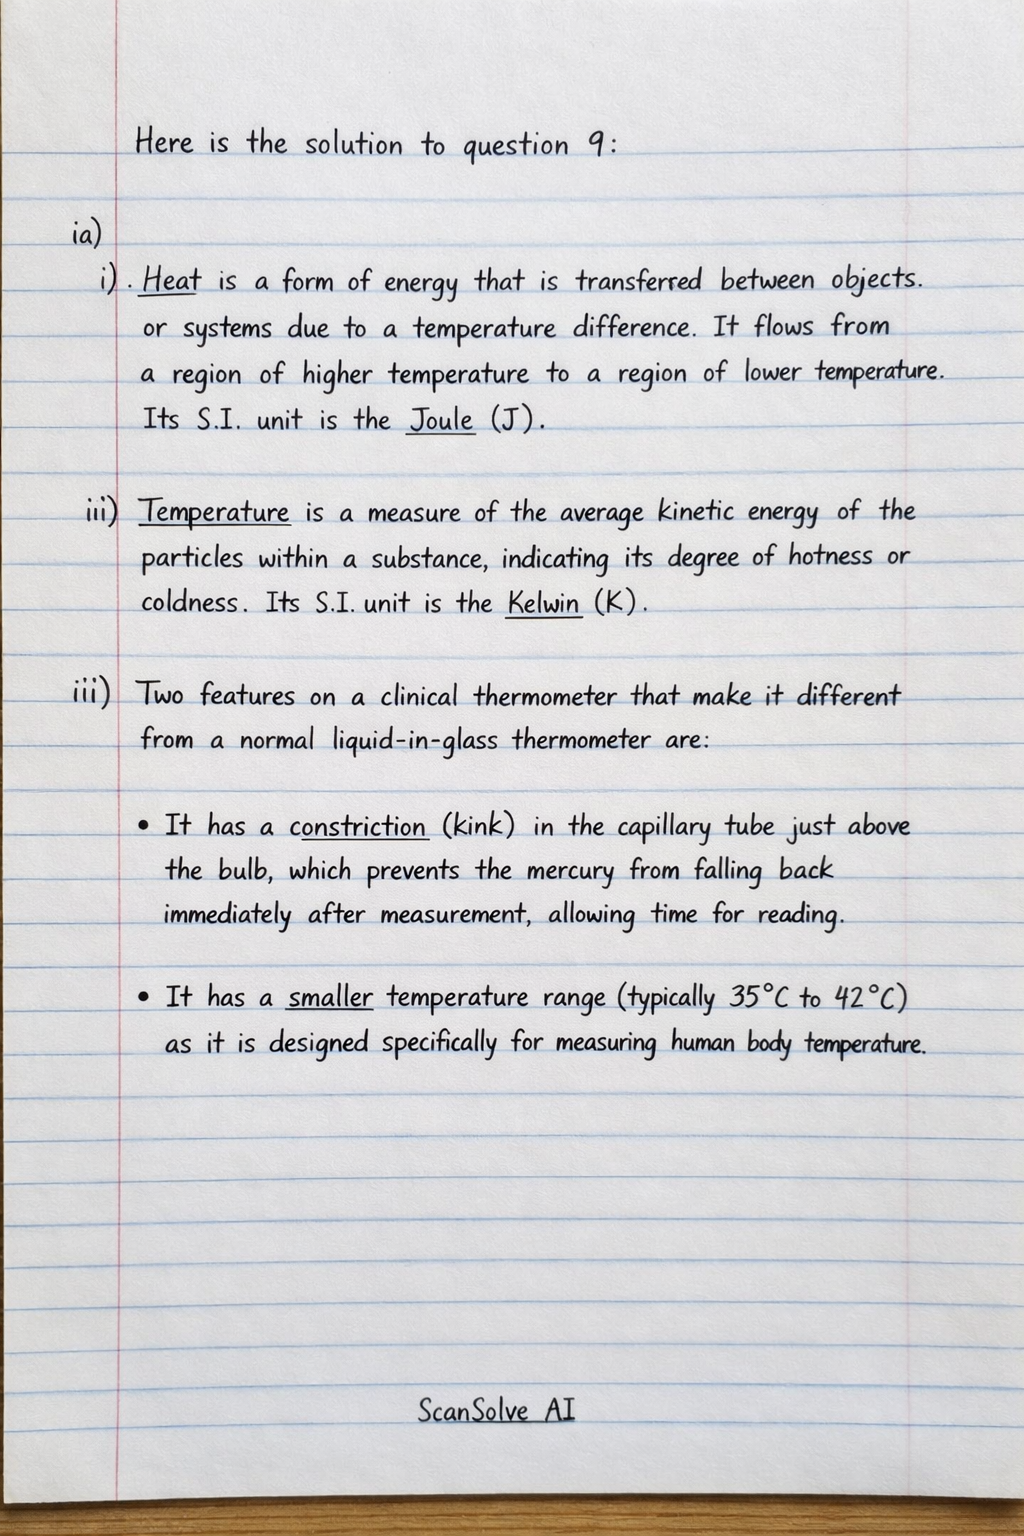 Here is the solution to question 9:
ia)
i). Heat is a form of energy that is transferred between objects.
or systems due to a temperature difference. It flows from
a region of higher temperature to a region of lower temperature.
Its S.I. unit is the Joule (J).
iii) Temperature is a measure of the average kinetic energy of the
particles within a substance, indicating its degree of hotness or
coldness. Its S.I. unit is the Kelwin (K).
iii) Two features on a clinical thermometer that make it different
from a normal liquid-in-glass thermometer are:
• It has a constriction (kink) in the capillary tube just above
the bulb, which prevents the mercury from falling back
immediately after measurement, allowing time for reading.
• It has a smaller temperature range (typically 35°C to 42°C)
as it is designed specifically for measuring human body temperature.
ScanSolve AI